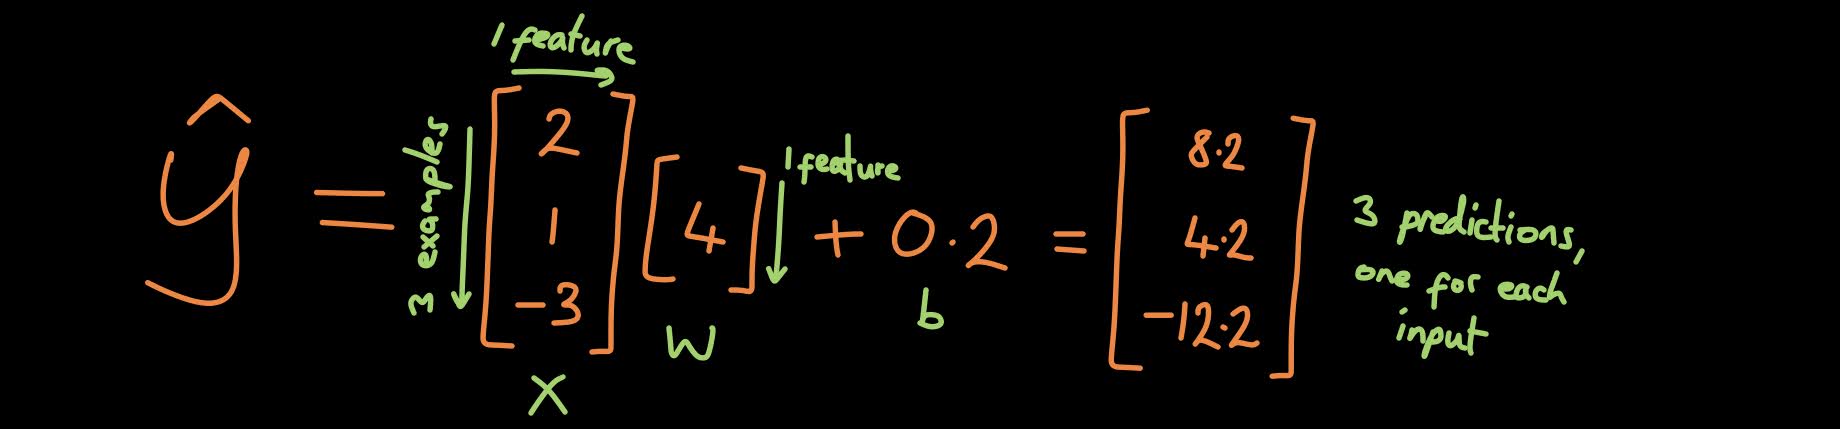 1 feature
ŷ = [2 1 -3] [4] + 0.2 = [8.2 4.2 -12.2]
3 examples
1 feature
X
W
b
3 predictions,
one for each
input